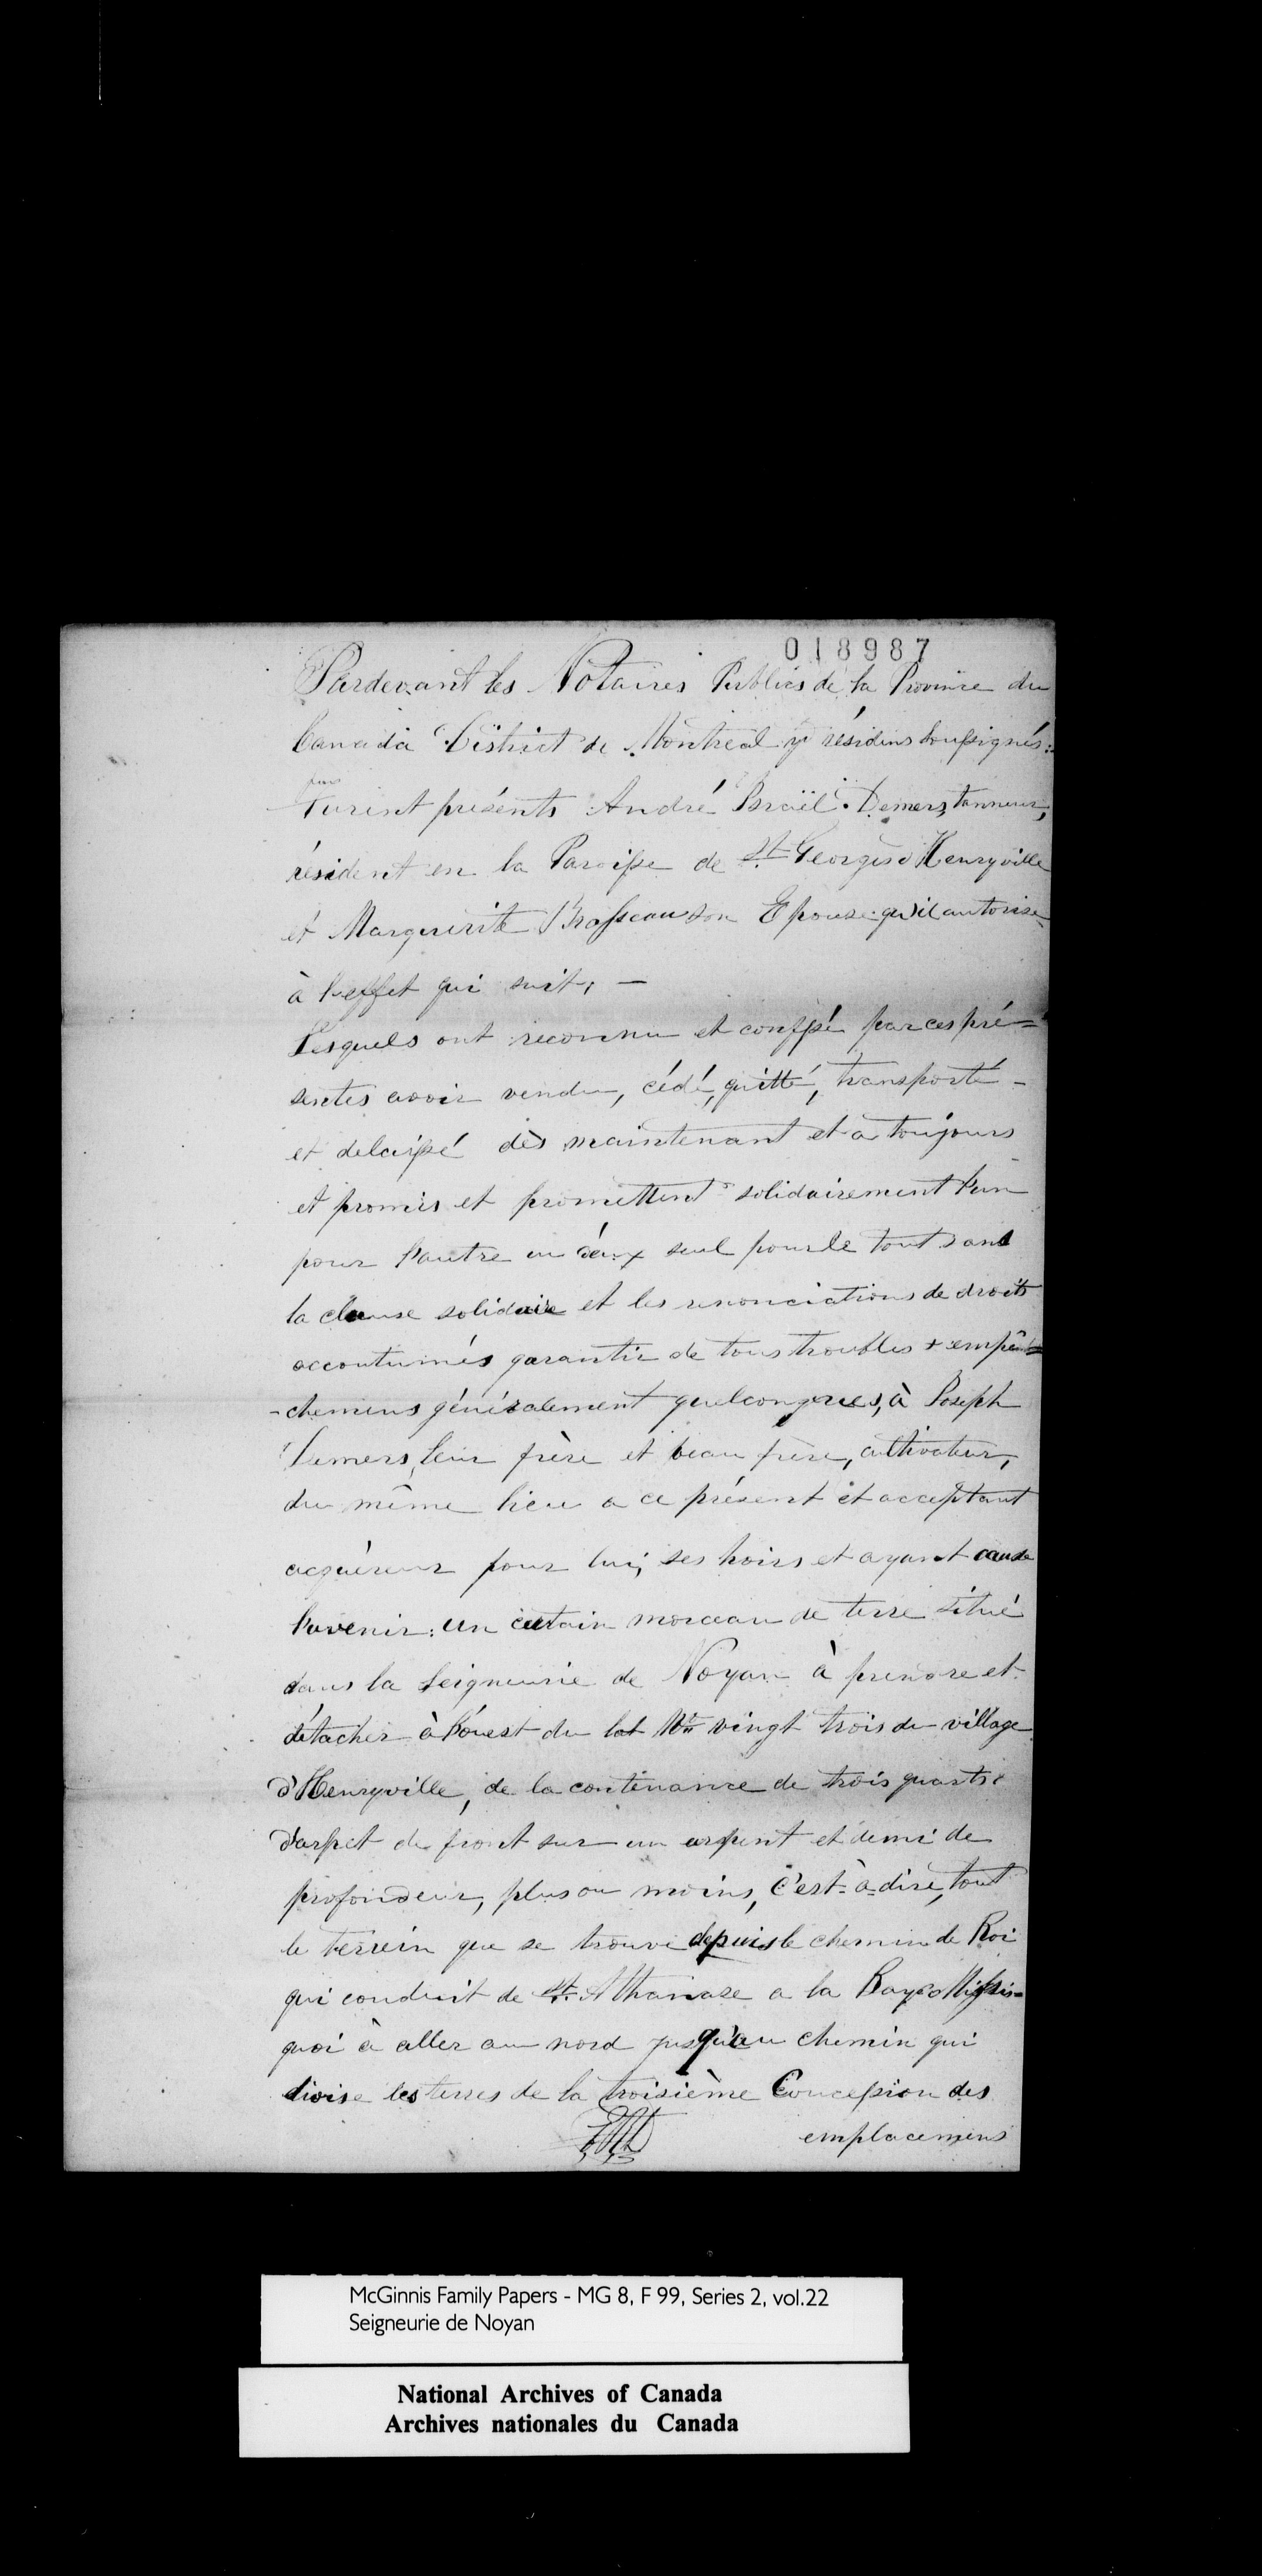 018987
Pardevant les Notaires Publics de la Province du
Canada District de Montreal y résidens soussignés:
Furent présents André Israël Demers, tanneur,
résident en la Paroisse de St. Georges d'Henryville
et Marguerite Brasseau son Epouse qu'il autorise
à l'effet qui suit; —
Lesquels ont reconnu et confessé par ces pré=
sentes avoir vendu, cédé, quitté, transporté -
et delaissé dès maintenant et a toujours
et promis et promettent solidairement l'un
pour l'autre un d'eux seul pour le tout sans
la clause solidaire et les renonciations de droits
accoutumés garantir de tous troubles + empê=
-chemens généralement quelconques, à Joseph
Demers, leur frère et beau frère, cultivateur,
du même lieu a ce présent et acceptant
acquéreur pour lui, ses hoirs et ayant cause
l'avenir: un certain morceau de terre situé
dans la Seigneurie de Noyan à prendre et
détacher à l'ouest du lot No. vingt trois du village
d'Henryville, de la contenance de trois quarts
d'arpet de front sur un arpent et demi de
profondeur, plus ou moins, c'est-à-dire, tout
le terrein que se trouve depuis le chemin de Roi
qui conduit de St. Athanase a la Baye Missis=
quoi à aller au nord jusqu'au chemin qui
divise les terres de la troisième Concession des
emplacemens
McGinnis Family Papers - MG 8, F 99, Series 2, vol.22
Seigneurie de Noyan
National Archives of Canada
Archives nationales du Canada